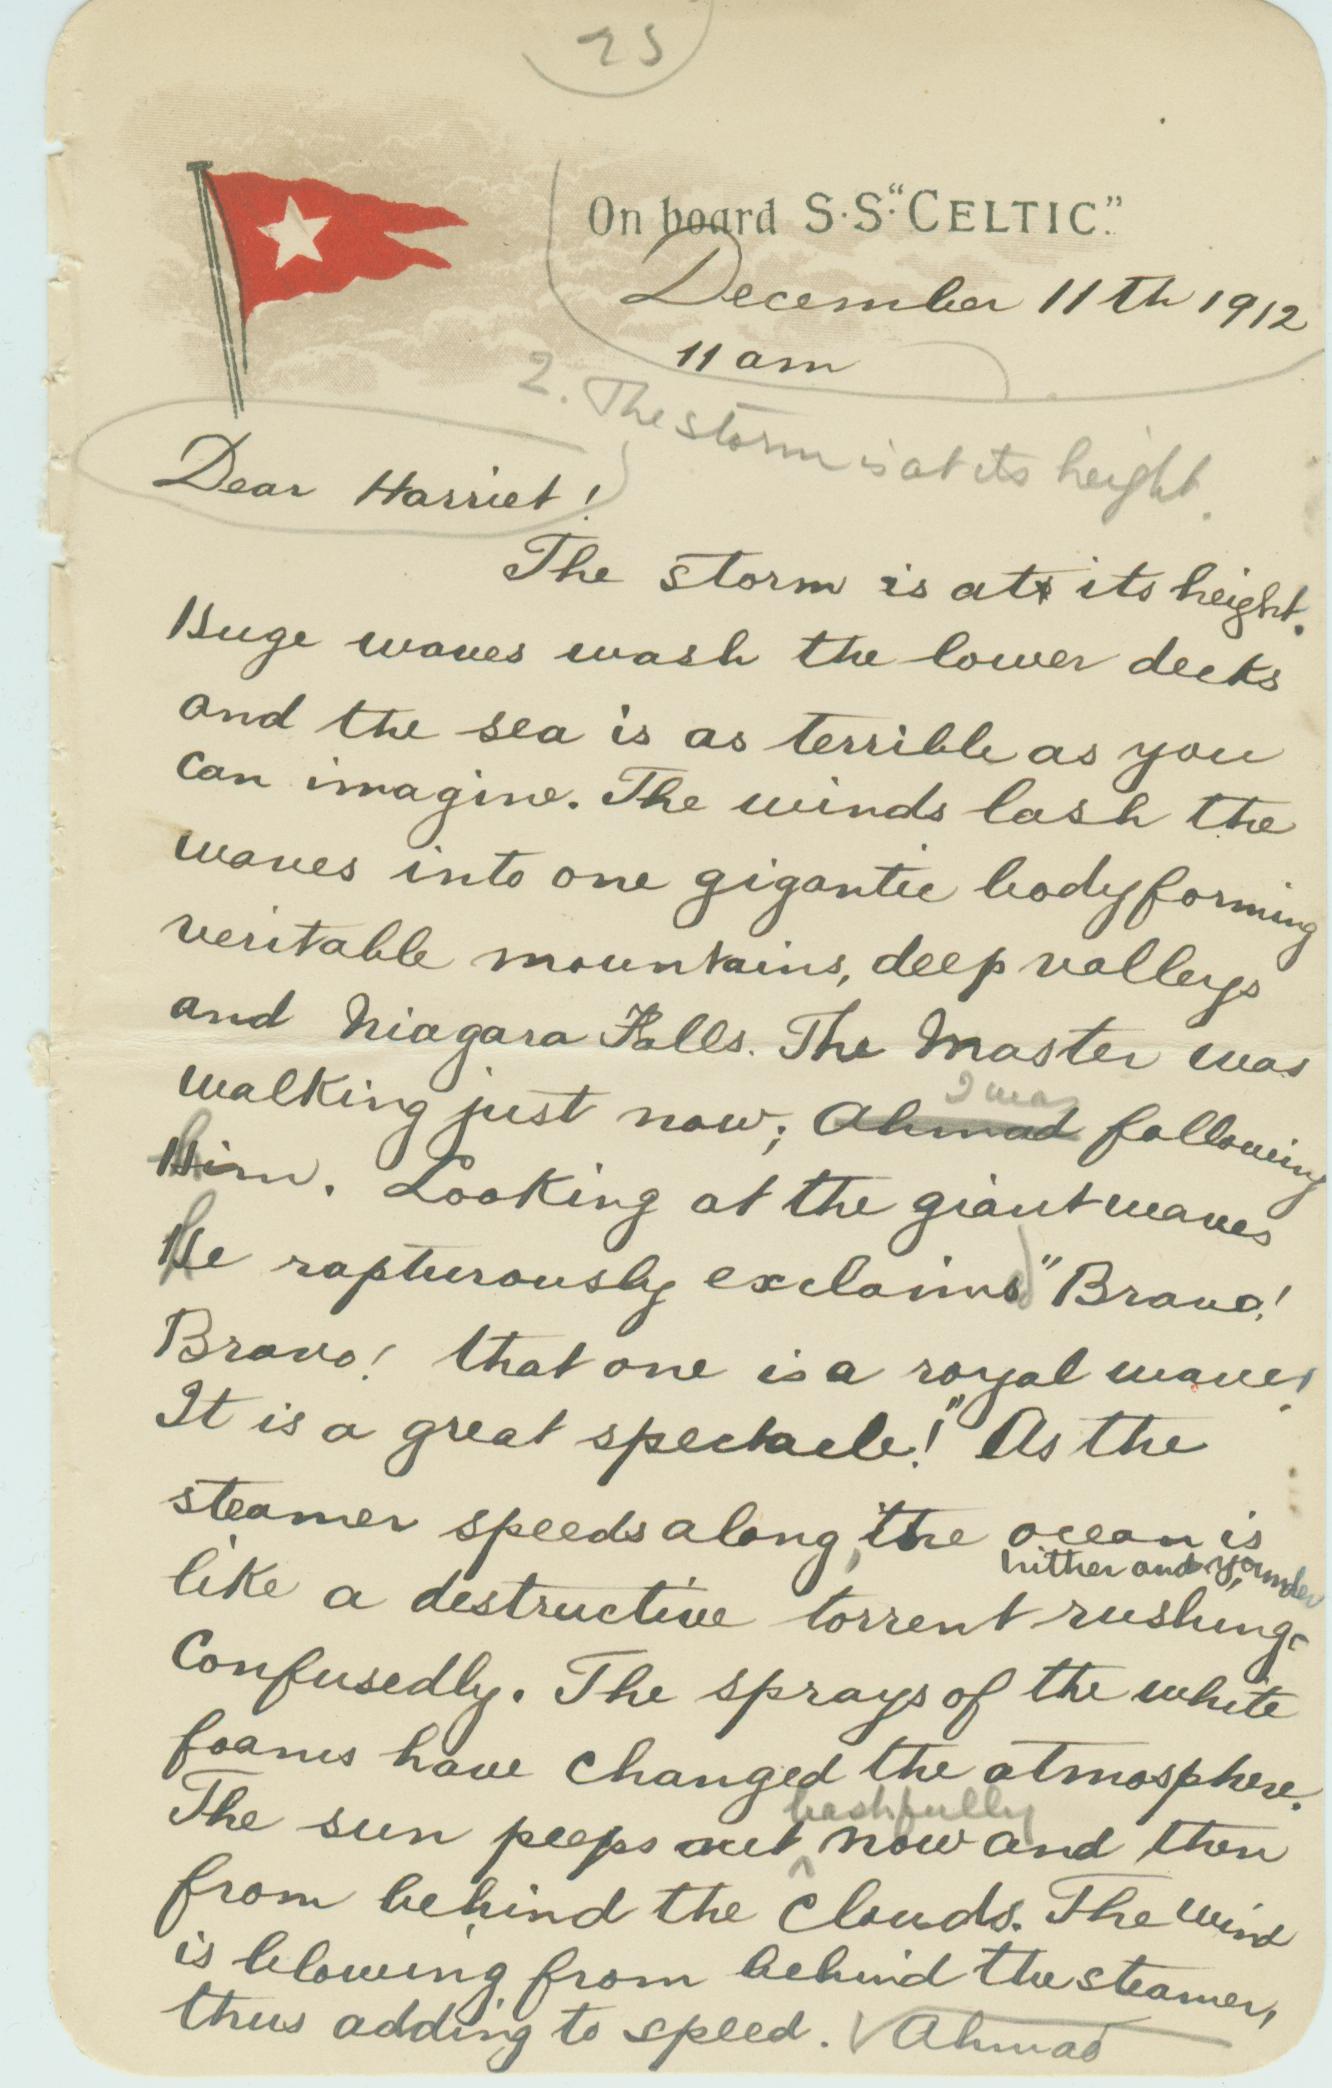 25
On board S.S. "CELTIC."
December 11th 1912
11 am
2. The storm is at its height.
Dear Harriet!
The storm is at its height.
Huge waves wash the lower decks
and the sea is as terrible as you
can imagine. The winds lash the
waves into one gigantic body forming
veritable mountains, deep valleys
and Niagara Falls. The Master was
I was
walking just now; Ahmad following
Him. Looking at the giant waves
He rapturously exclaims "Bravo!
Bravo! that one is a royal wave!
It is a great spectacle!" As the
steamer speeds along, the ocean is
hither and yonder
like a destructive torrent rushing
confusedly. The sprays of the white
foams have changed the atmosphere.
bashfully
The sun peeps out now and then
from behind the clouds. The wind
is blowing from behind the steamer,
thus adding to speed. Ahmad